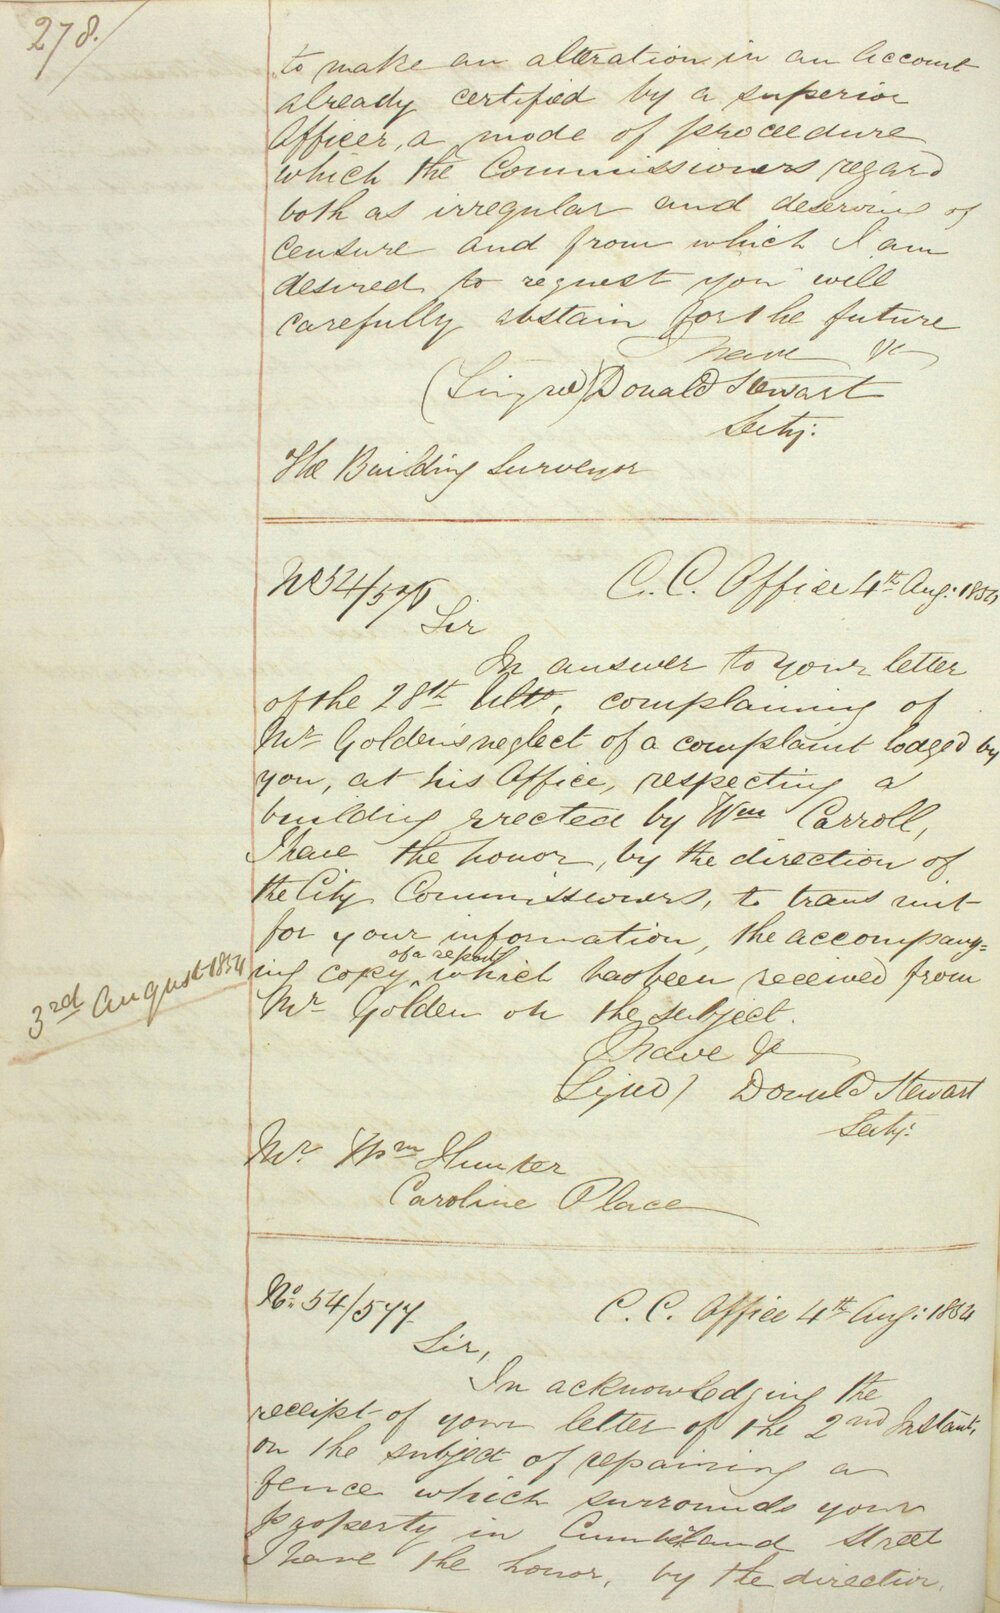 278.
to make an alteration in an Account
already certified by a superior
Officer, a mode of proceedure
which the Commissioners regard
both as irregular and deserving of
censure and from which I am
desired to request you will
carefully abstain for the future
I have &c
(Singned) Donald Stewart
Secty:
The Building Surveyor
No 54/576
C. C. Office 4th Aug: 1854
Sir
In answer to your letter
of the 28th Ulto, complaining of
Mr Golden's neglect of a complaint lodged by
you, at his Office, respecting a
building erected by Wm Carroll,
I have the honor, by the direction of
the City Commissioners, to transmit
for your information, the accompany=
of a report
ing copy, which has been received from
3rd August 1854
Mr Golden on the subject.
I have &c
(Signd) Donald Stewart
Secty:
Mr Wm Hunter
Caroline Place
No. 54/577
C. C. Office 4th Aug: 1854
Sir,
In acknowledging the
receipt of your letter of the 2nd Instant,
on the subject of repairing a
fence which surrounds your
property in Cumberland Street
I have the honor, by the direction